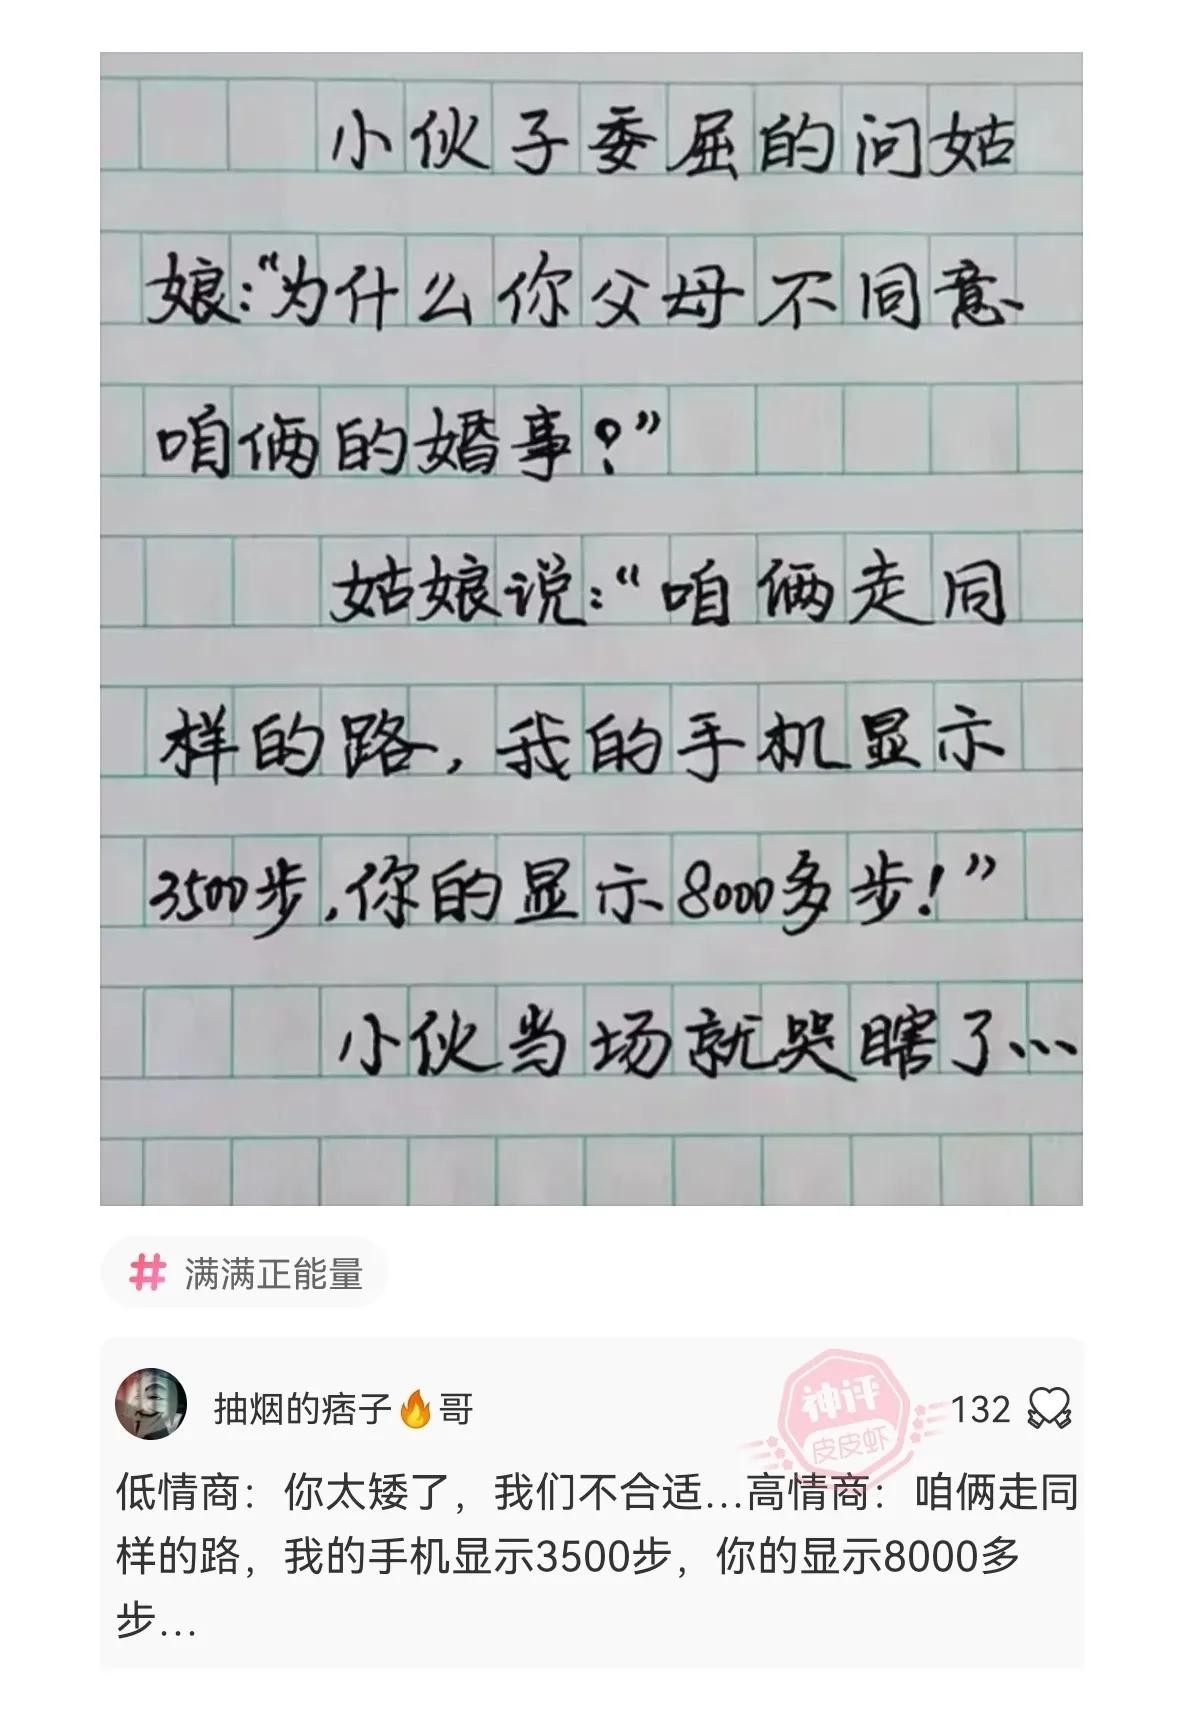 小伙子委屈的问姑
娘:“为什么你父母不同意
咱俩的婚事?”
姑娘说:“咱俩走同
样的路,我的手机显示
3500步,你的显示8000多步!”
小伙当场就哭瞎了…
# 满满正能量
抽烟的痞子🔥哥
神评
皮皮虾
132
低情商：你太矮了，我们不合适...高情商：咱俩走同
样的路，我的手机显示3500步，你的显示8000多
步...